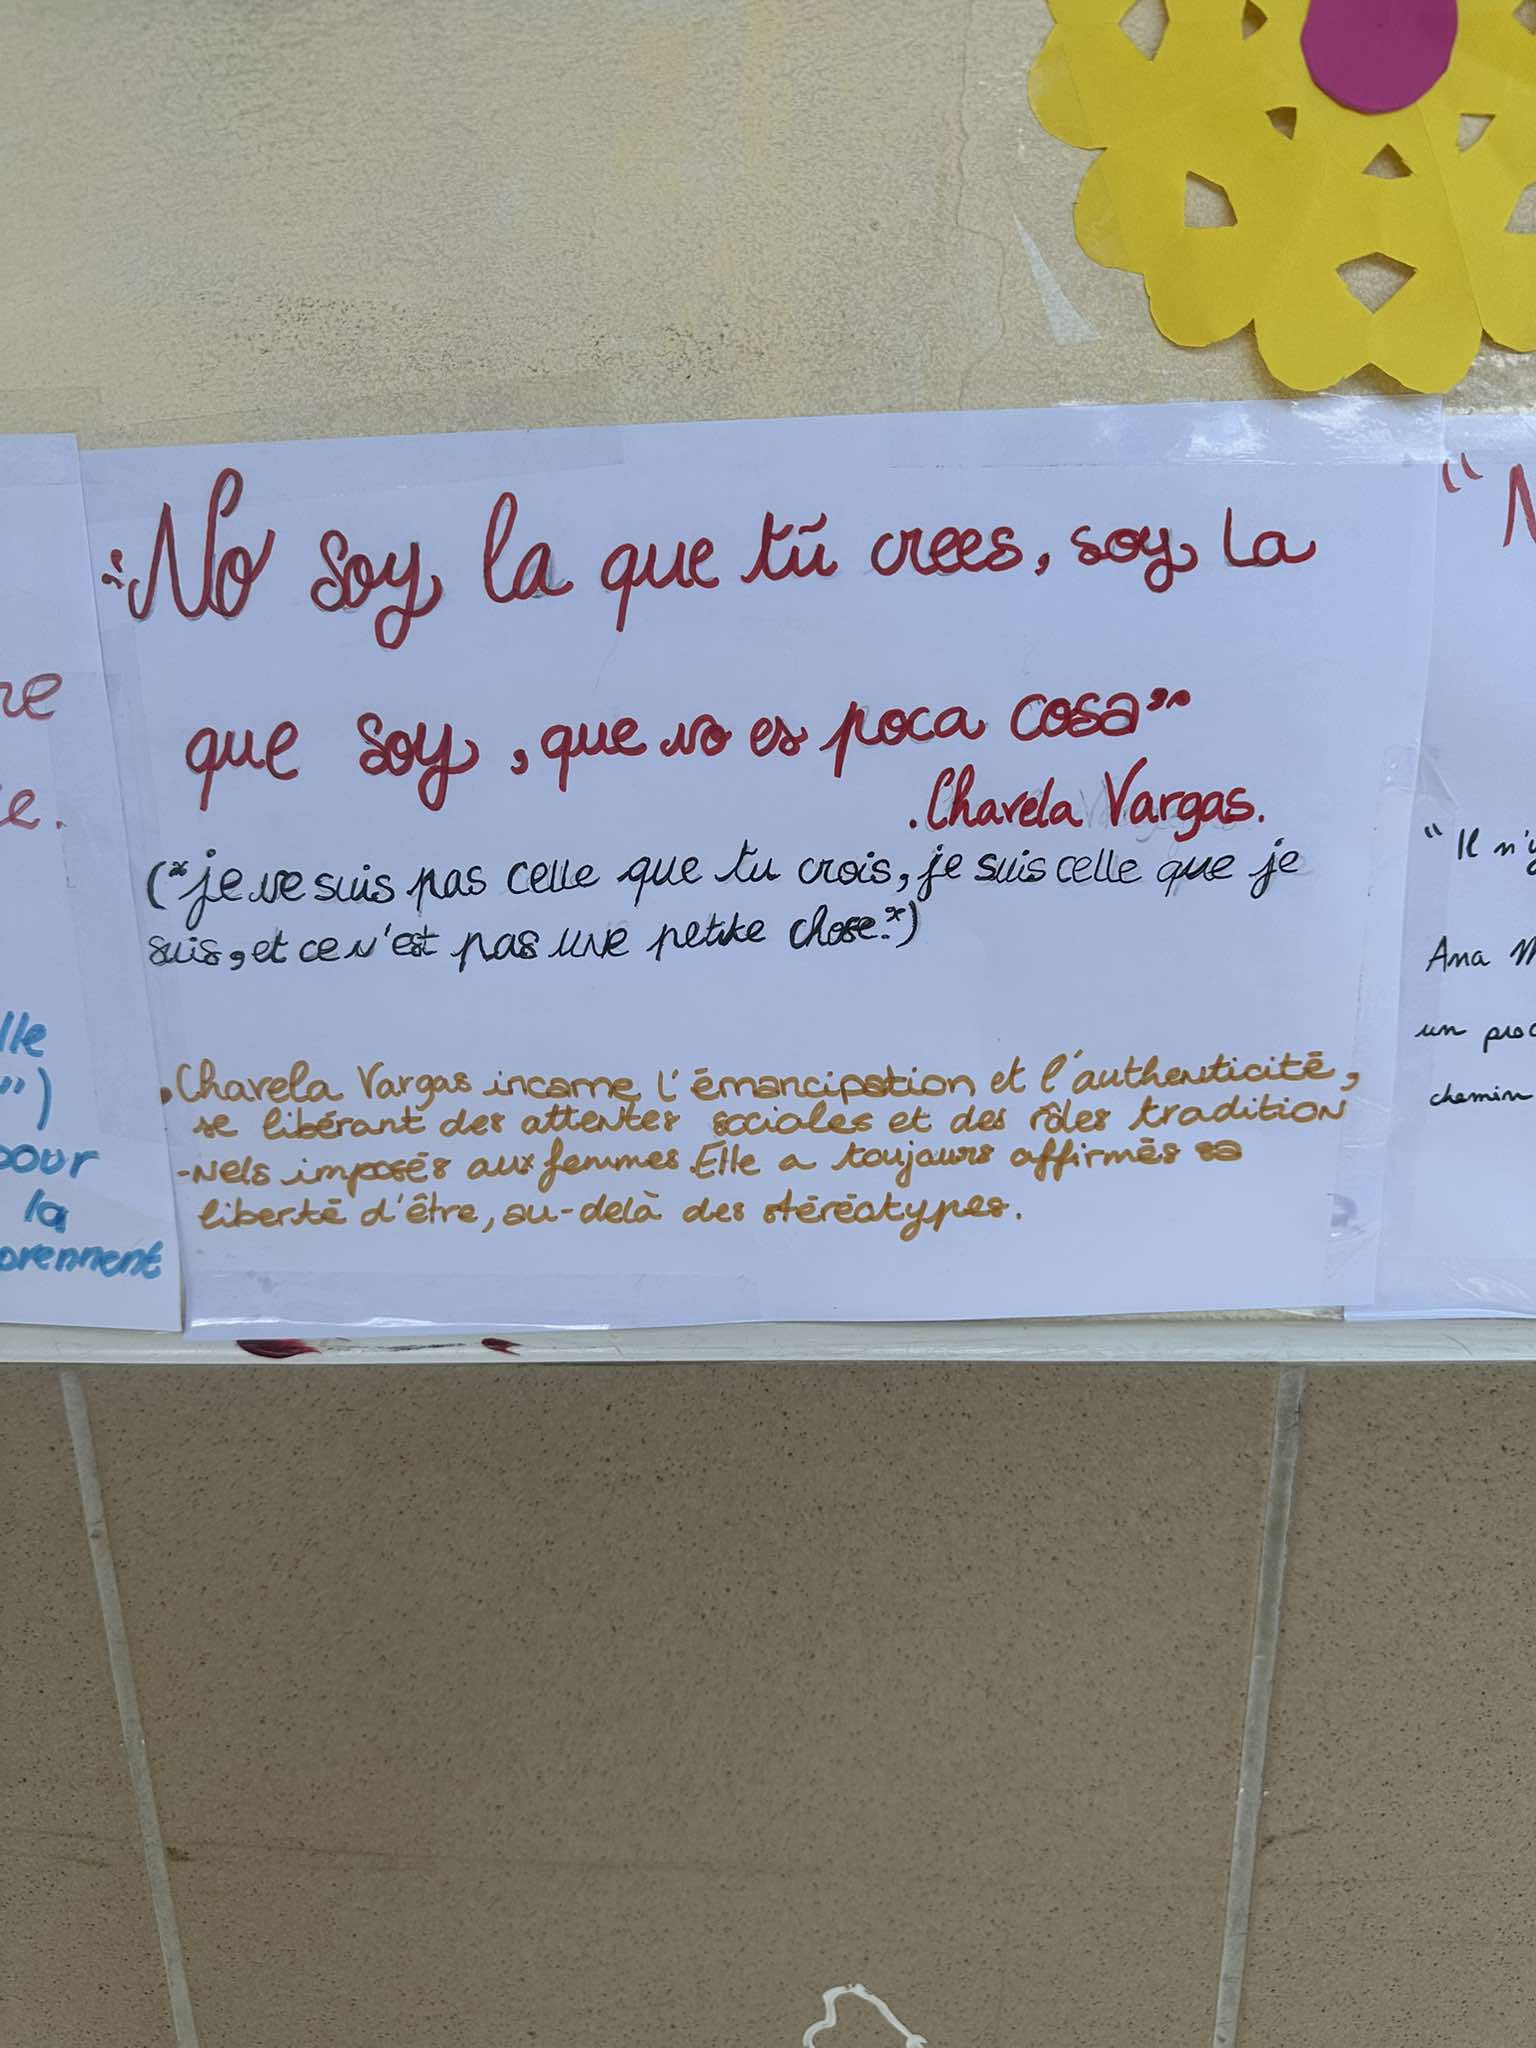 "No soy la que tú crees, soy la
que soy, que no es poca cosa"
.Chavela Vargas.
("je ne suis pas celle que tu crois, je suis celle que je
suis, et ce n'est pas une petite chose.")
. Chavela Vargas incarne l'émancipation et l'authenticité,
se libérant des attentes sociales et des rôles tradition
-nels imposés aux femmes. Elle a toujours affirmés sa
liberté d'être, au-delà des stéréotypes.
re
e.
lle
")
pour
la
prennent
" N
"Il n'y
Ana M
un proc
chemin